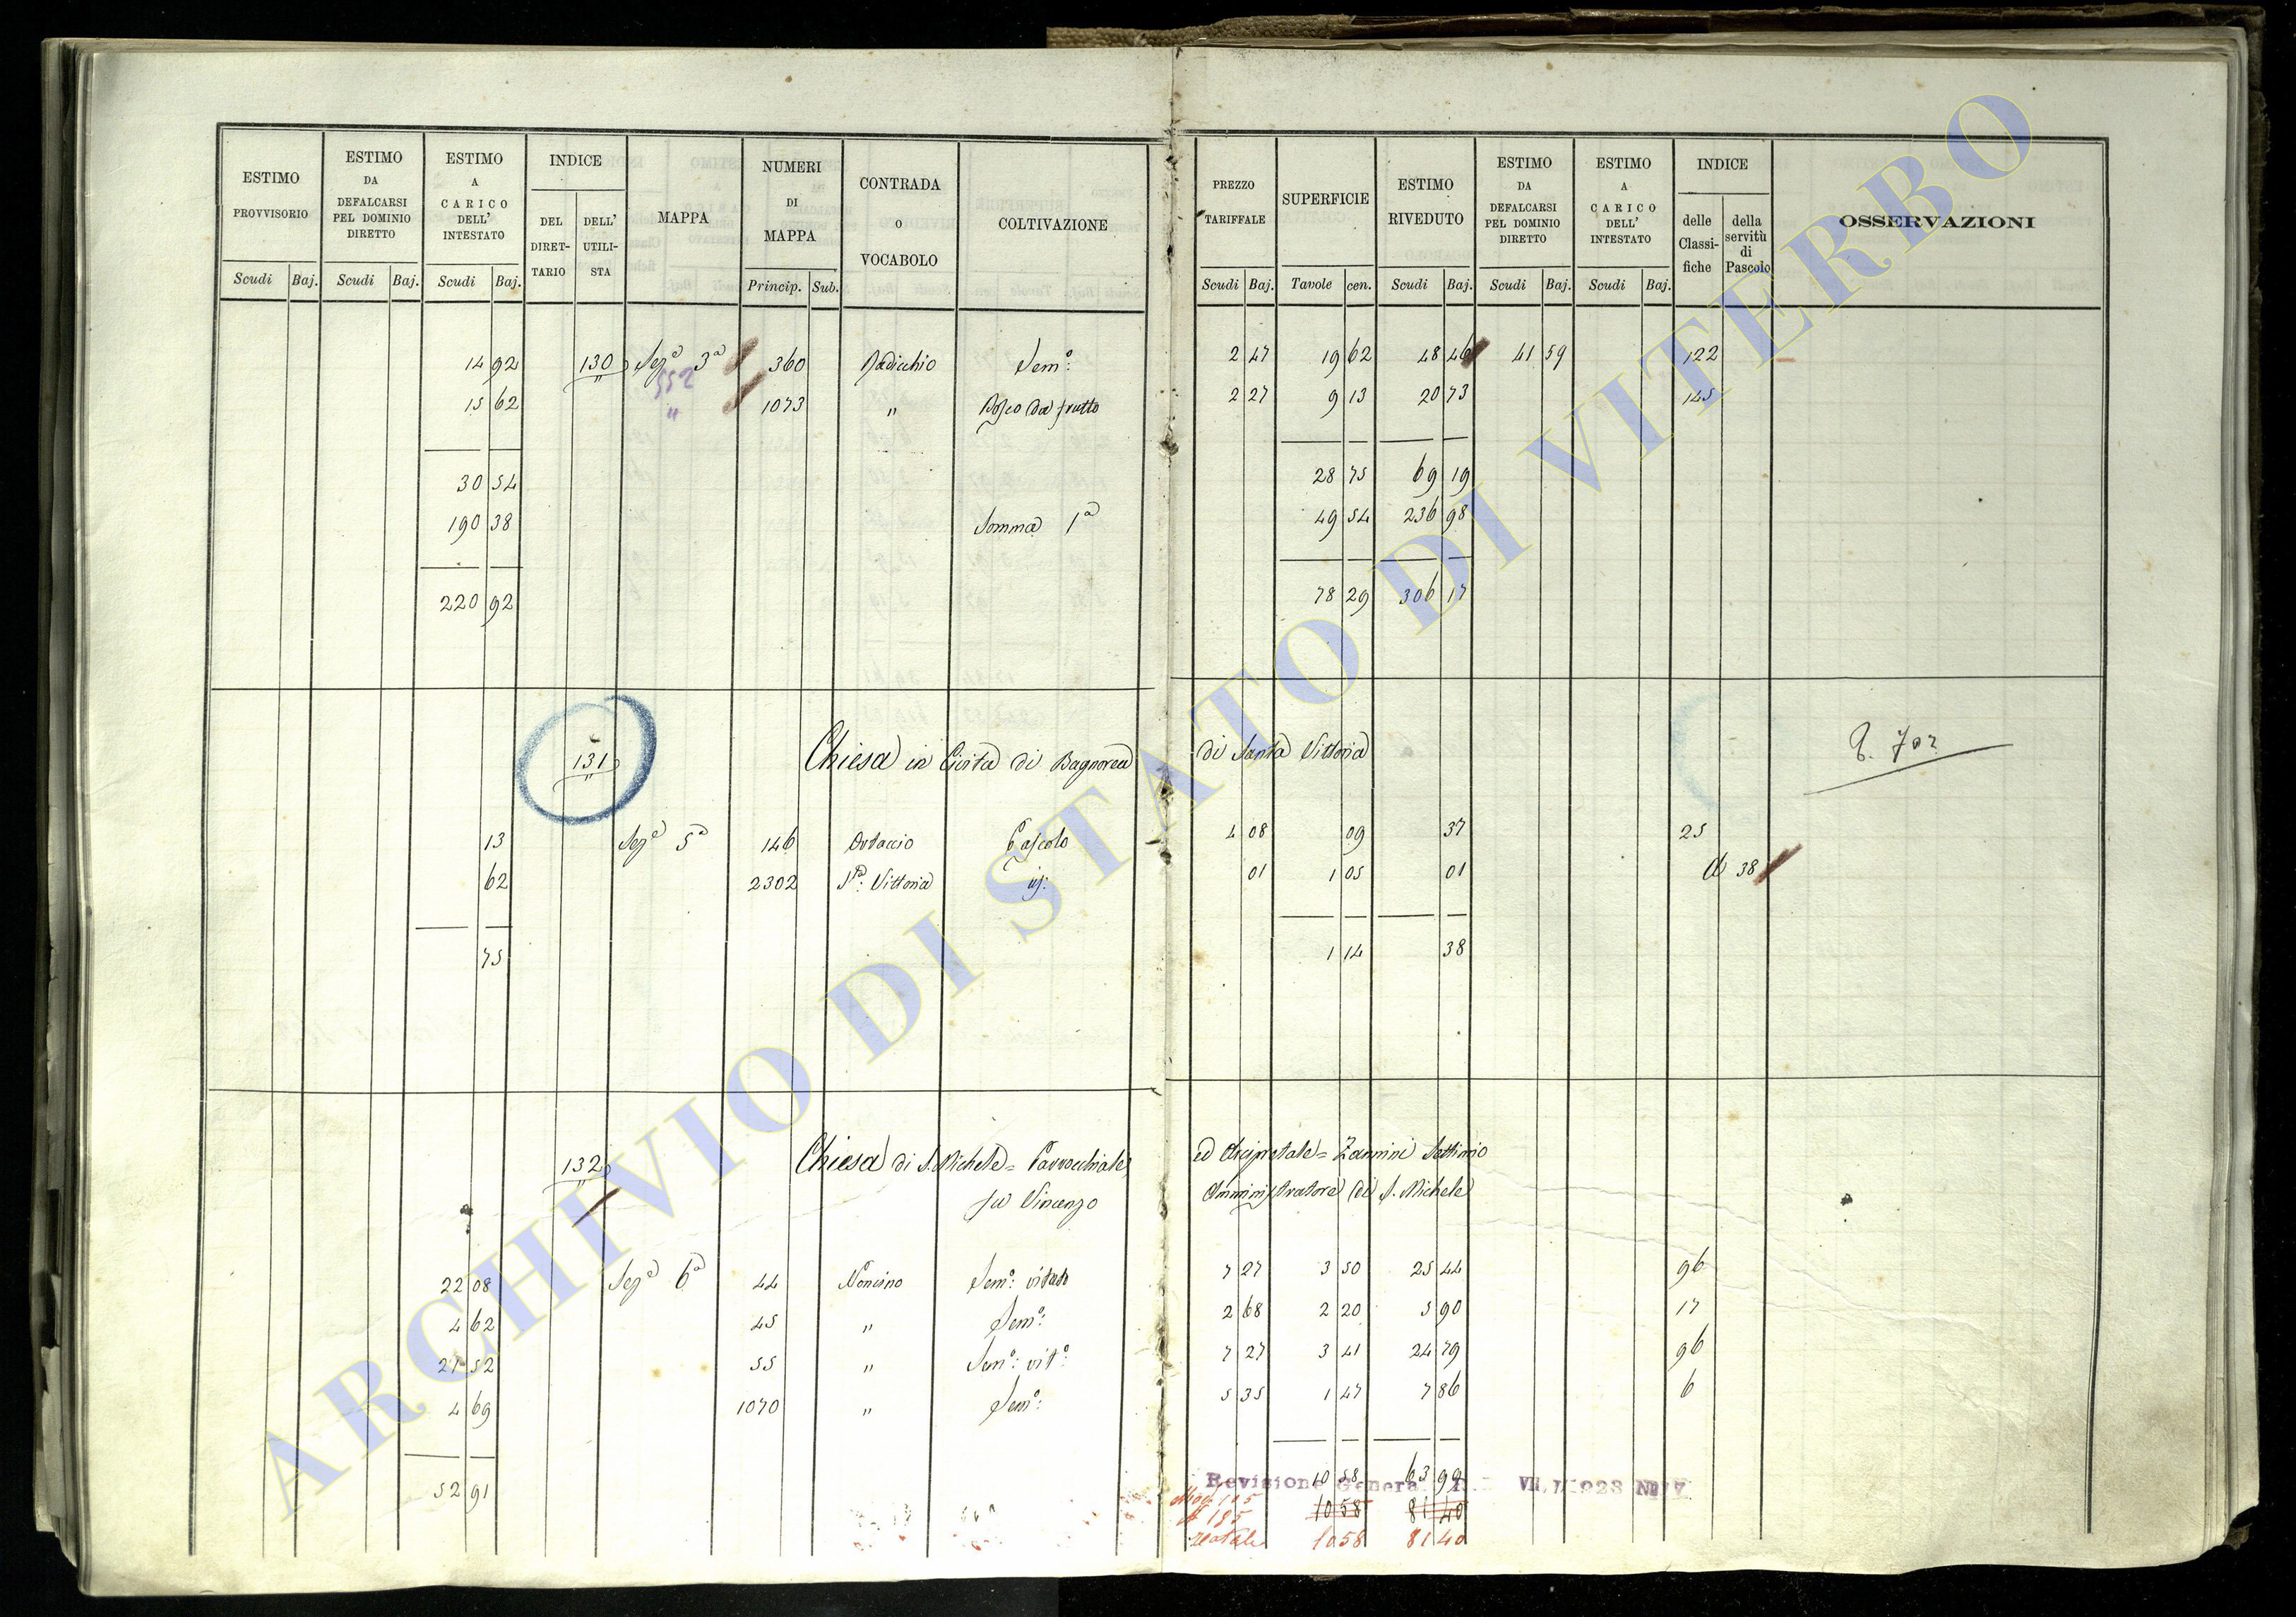 ESTIMO PROVVISORIO Scudi Baj. ESTIMO DA DEFALCARSI PEL DOMINIO DIRETTO Scudi Baj. ESTIMO A CARICO DELL' INTESTATO Scudi Baj. INDICE DEL DIRET- TARIO DELL' UTILI- STA MAPPA NUMERI DI MAPPA Princip. Sub. CONTRADA O VOCABOLO COLTIVAZIONE PREZZO TARIFFALE Scudi Baj. SUPERFICIE Tavole cen. ESTIMO RIVEDUTO Scudi Baj. ESTIMO DA DEFALCARSI PEL DOMINIO DIRETTO Scudi Baj. ESTIMO A CARICO DELL' INTESTATO Scudi Baj. INDICE delle Classi- fiche della servitù di Pascolo OSSERVAZIONI
14 92 130 Sez.e 3a 360 Radicchio Sem.o 2 47 19 62 48 46 41 59 122
552
15 62 " 1073 " Bosco da frutto 2 27 9 13 20 73 145
30 54 28 75 69 19
190 38 Somma 1a 49 54 236 98
220 92 78 29 306 17
131 Chiesa in Civita di Bagnorea di Santa Vittoria
13 Sez.e 5a 146 Ortaccio Pascolo 4 08 09 37 25
62 2302 S.ta Vittoria id: 01 1 05 01 A 38
75 1 14 38
132 Chiesa di S. Michele = Parrocchiale ed Arcipretale = Zannini Settimio
fu Vincenzo Amministratore di S. Michele
22 08 Sez.e 6a 44 Noncino Sem.o vitato 7 27 3 50 25 44 96
4 62 45 " Sem.o 2 68 2 20 5 90 17
21 52 55 " Sem.o vit.o 7 27 3 41 24 79 96
4 69 1070 " Sem.o 5 35 1 47 7 86 6
52 91 10 58 63 99
Revisione General
10 58 81 40
10 58 81 40
ARCHIVIO DI STATO DI VITERBO